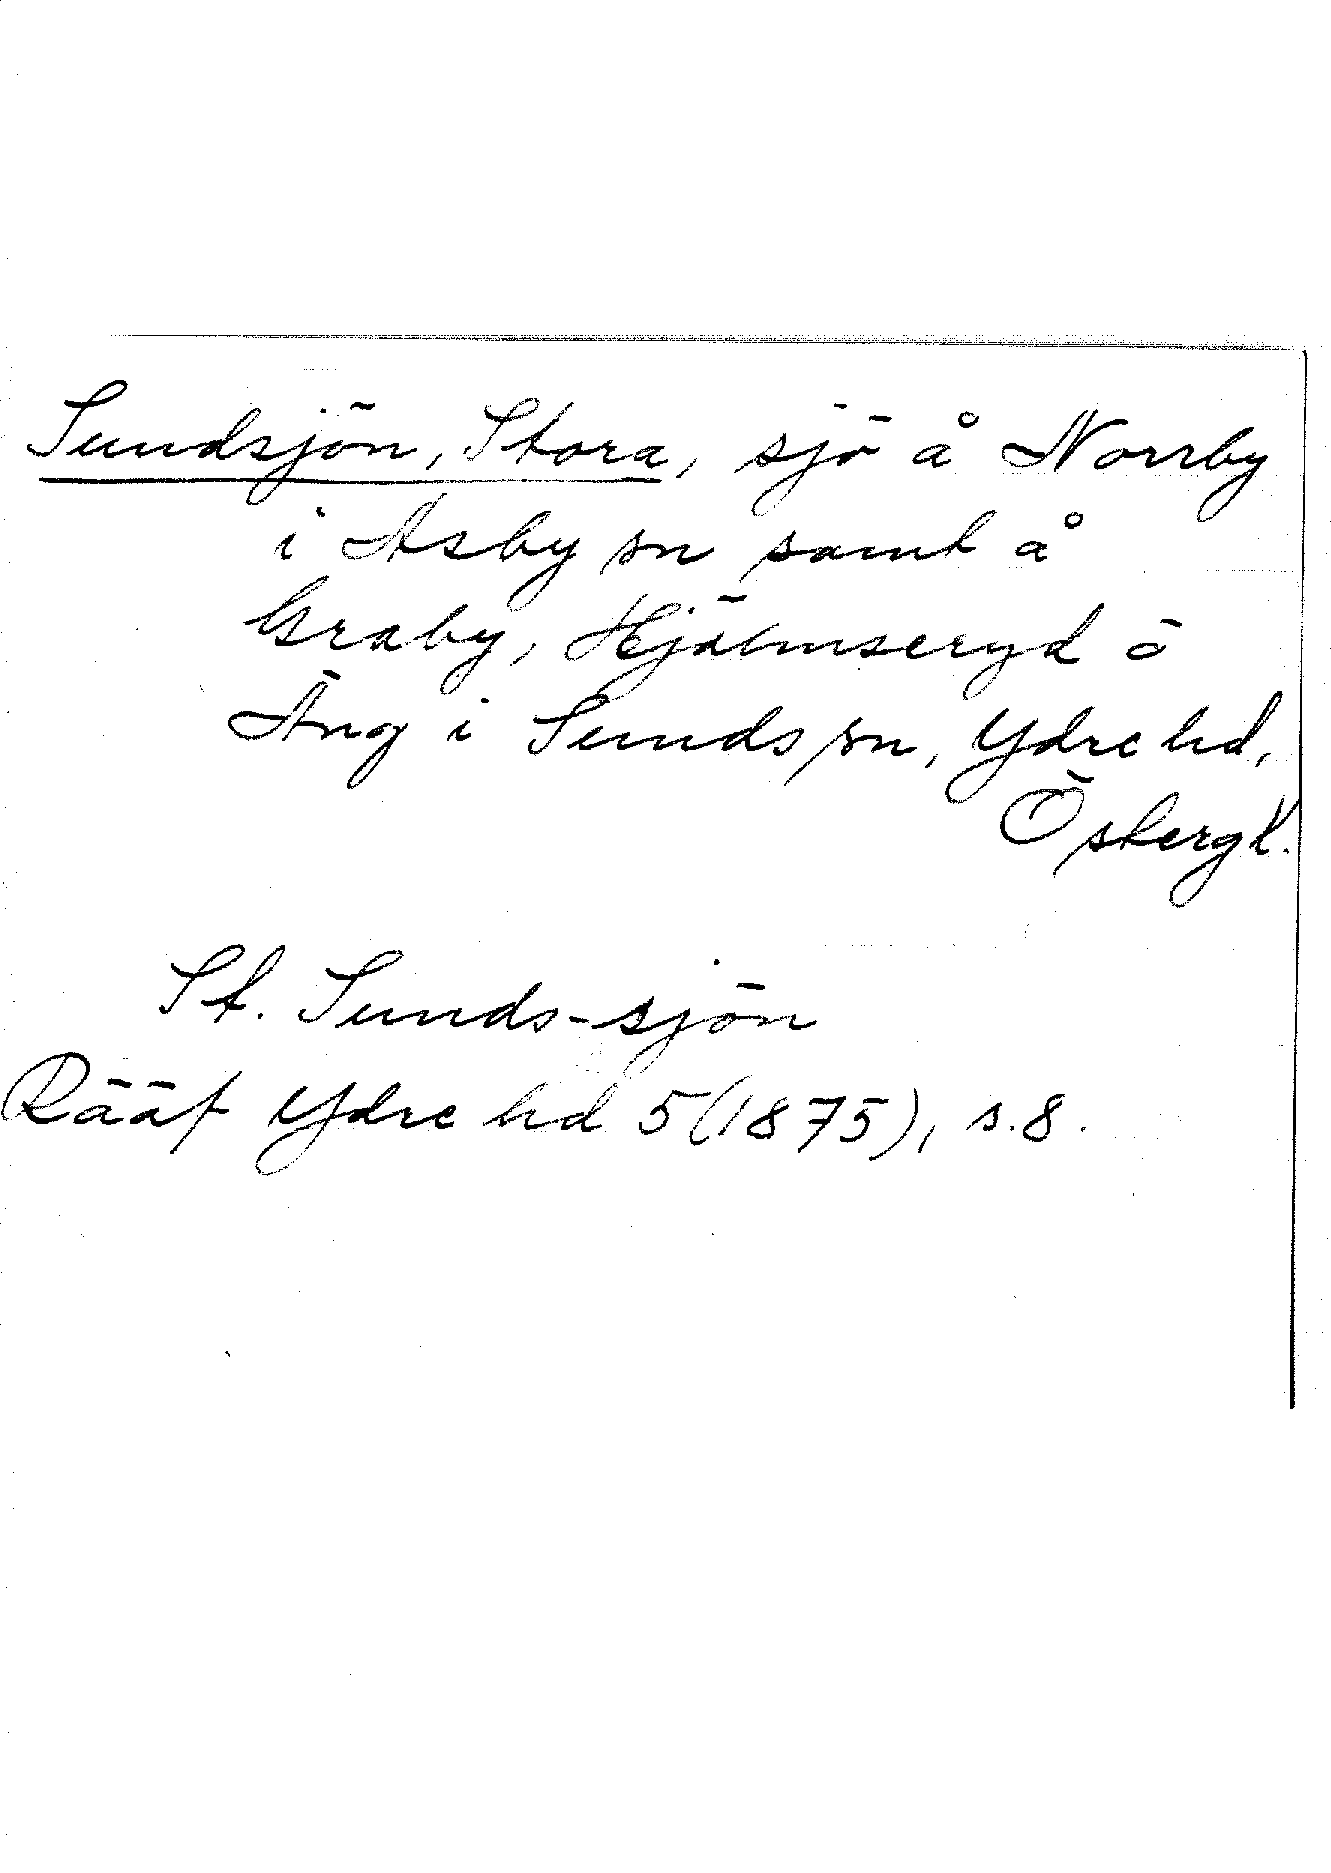 Sundsjön, Stora, sjö å Norrby
i Asby sn samt å
Graby, Hjälmseryd o
Äng i Sunds sn, Ydre hd,
Östergtl.
St. Sunds-sjön
Rääf Ydre hd 5(1875), s.8.